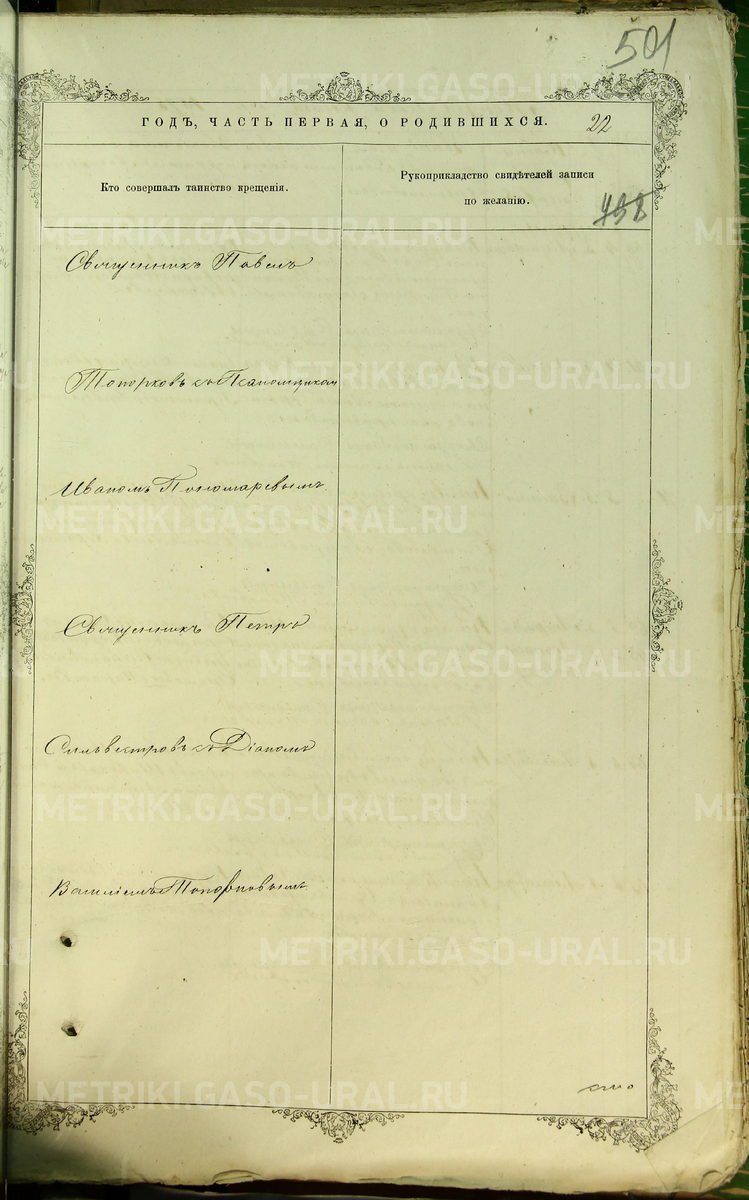 501
ГОДЪ, ЧАСТЬ ПЕРВАЯ, О РОДИВШИХСЯ.
22
Кто совершалъ таинство крещенія.
Рукоприкладство свидѣтелей записи
по желанію.
498
Священникъ Павелъ
Топорковъ съ Псаломщикомъ
Иваномъ Пономаревымъ.
Священникъ Петръ
Сильвестровъ съ Діаномъ
Василіемъ Топорковымъ.
METRIKI.GASO-URAL.RU
METRIKI.GASO-URAL.RU
METRIKI.GASO-URAL.RU
METRIKI.GASO-URAL.RU
METRIKI.GASO-URAL.RU
METRIKI.GASO-URAL.RU
METRIKI.GASO-URAL.RU
METRIKI.GASO-URAL.RU